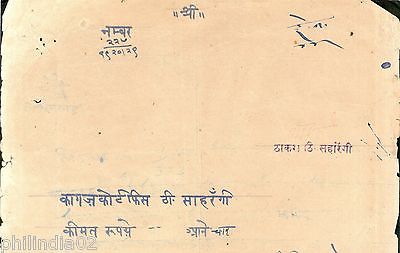 ॥ श्री ॥
नम्बर
२२५
१९२०।२९
ठाकरा ठि. सहारंगी
कागज़ कोर्टफिस ठी. साहरँगी
कीमत रूपये -- आने चार
philindia02